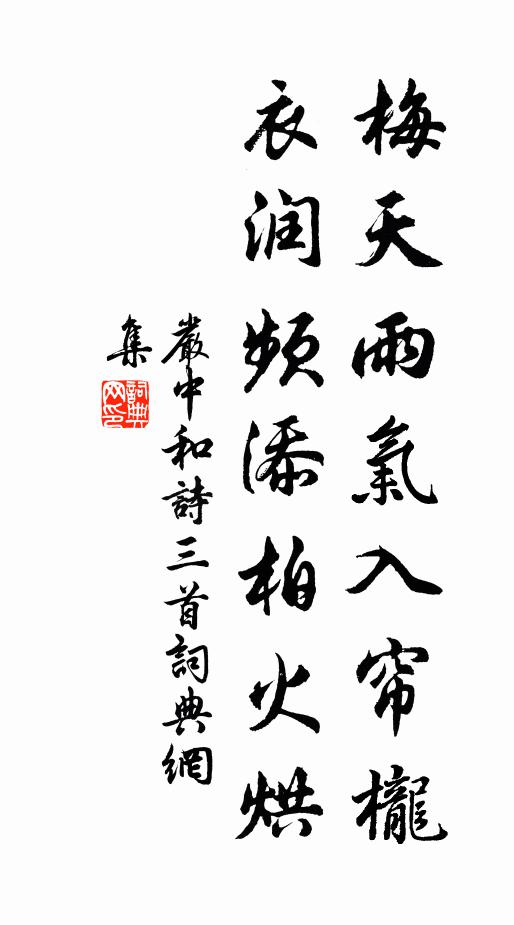 梅天雨氣入帘櫳
衣润頻添柏火烘
嚴中和詩三首詞典網
集
詞典
网印